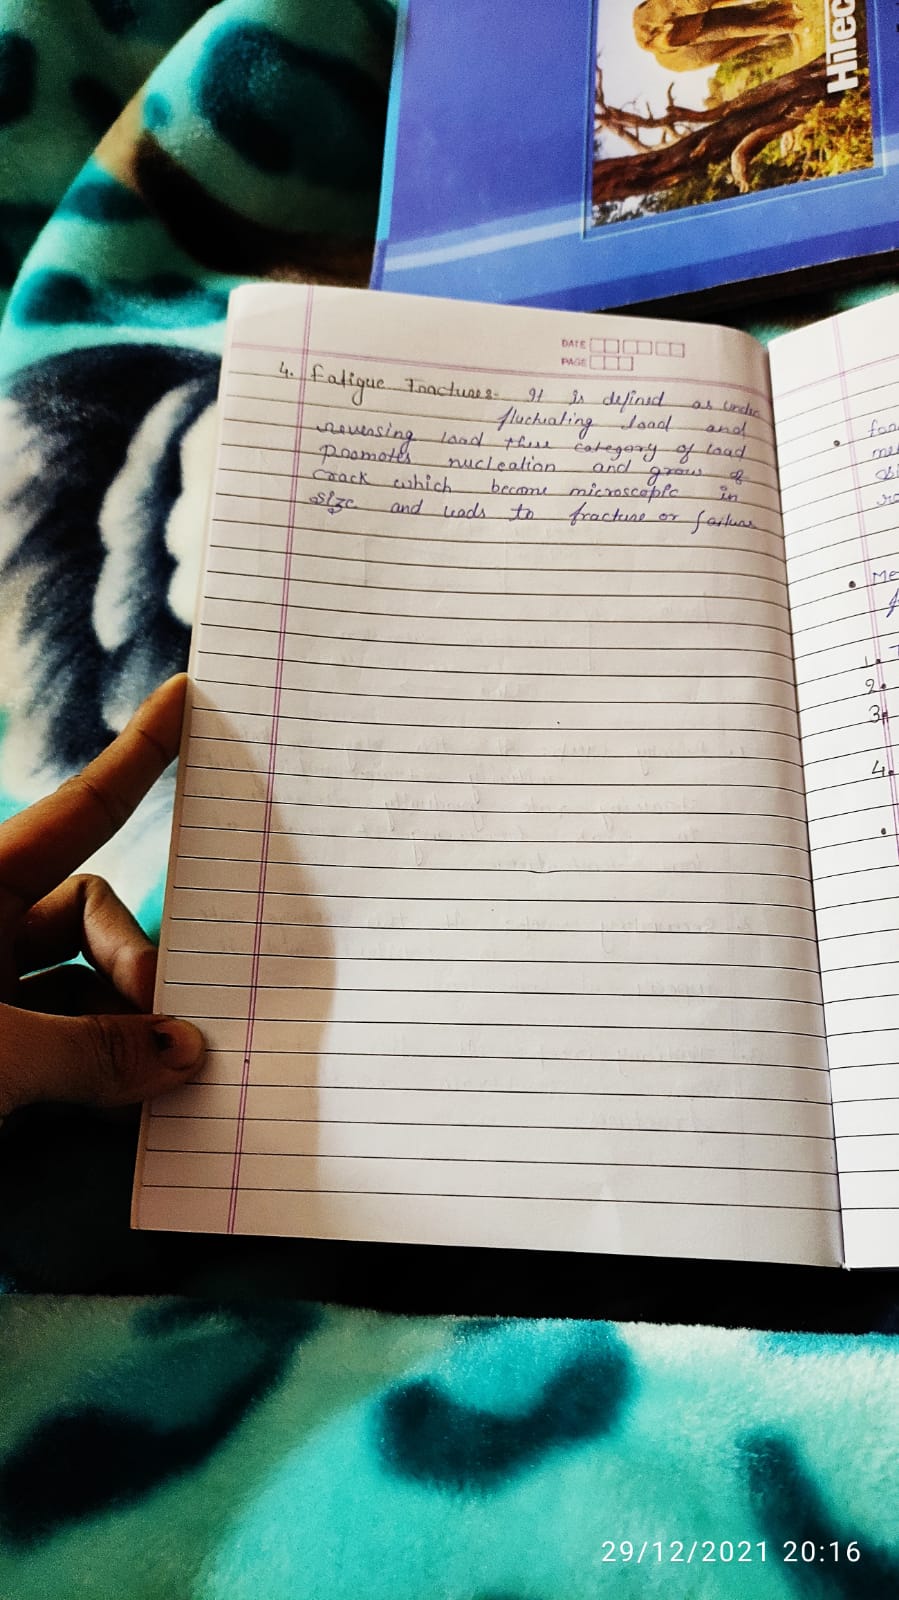 Hitec
DATE
PAGE
4. Fatigue Fractures:- It is defined as under
fluctuating load and
reversing load these category of load
Promotes nucleation and grows of
crack which become microscopic in
size and leads to fracture or failure
1.
2.
3.
4.
29/12/2021 20:16